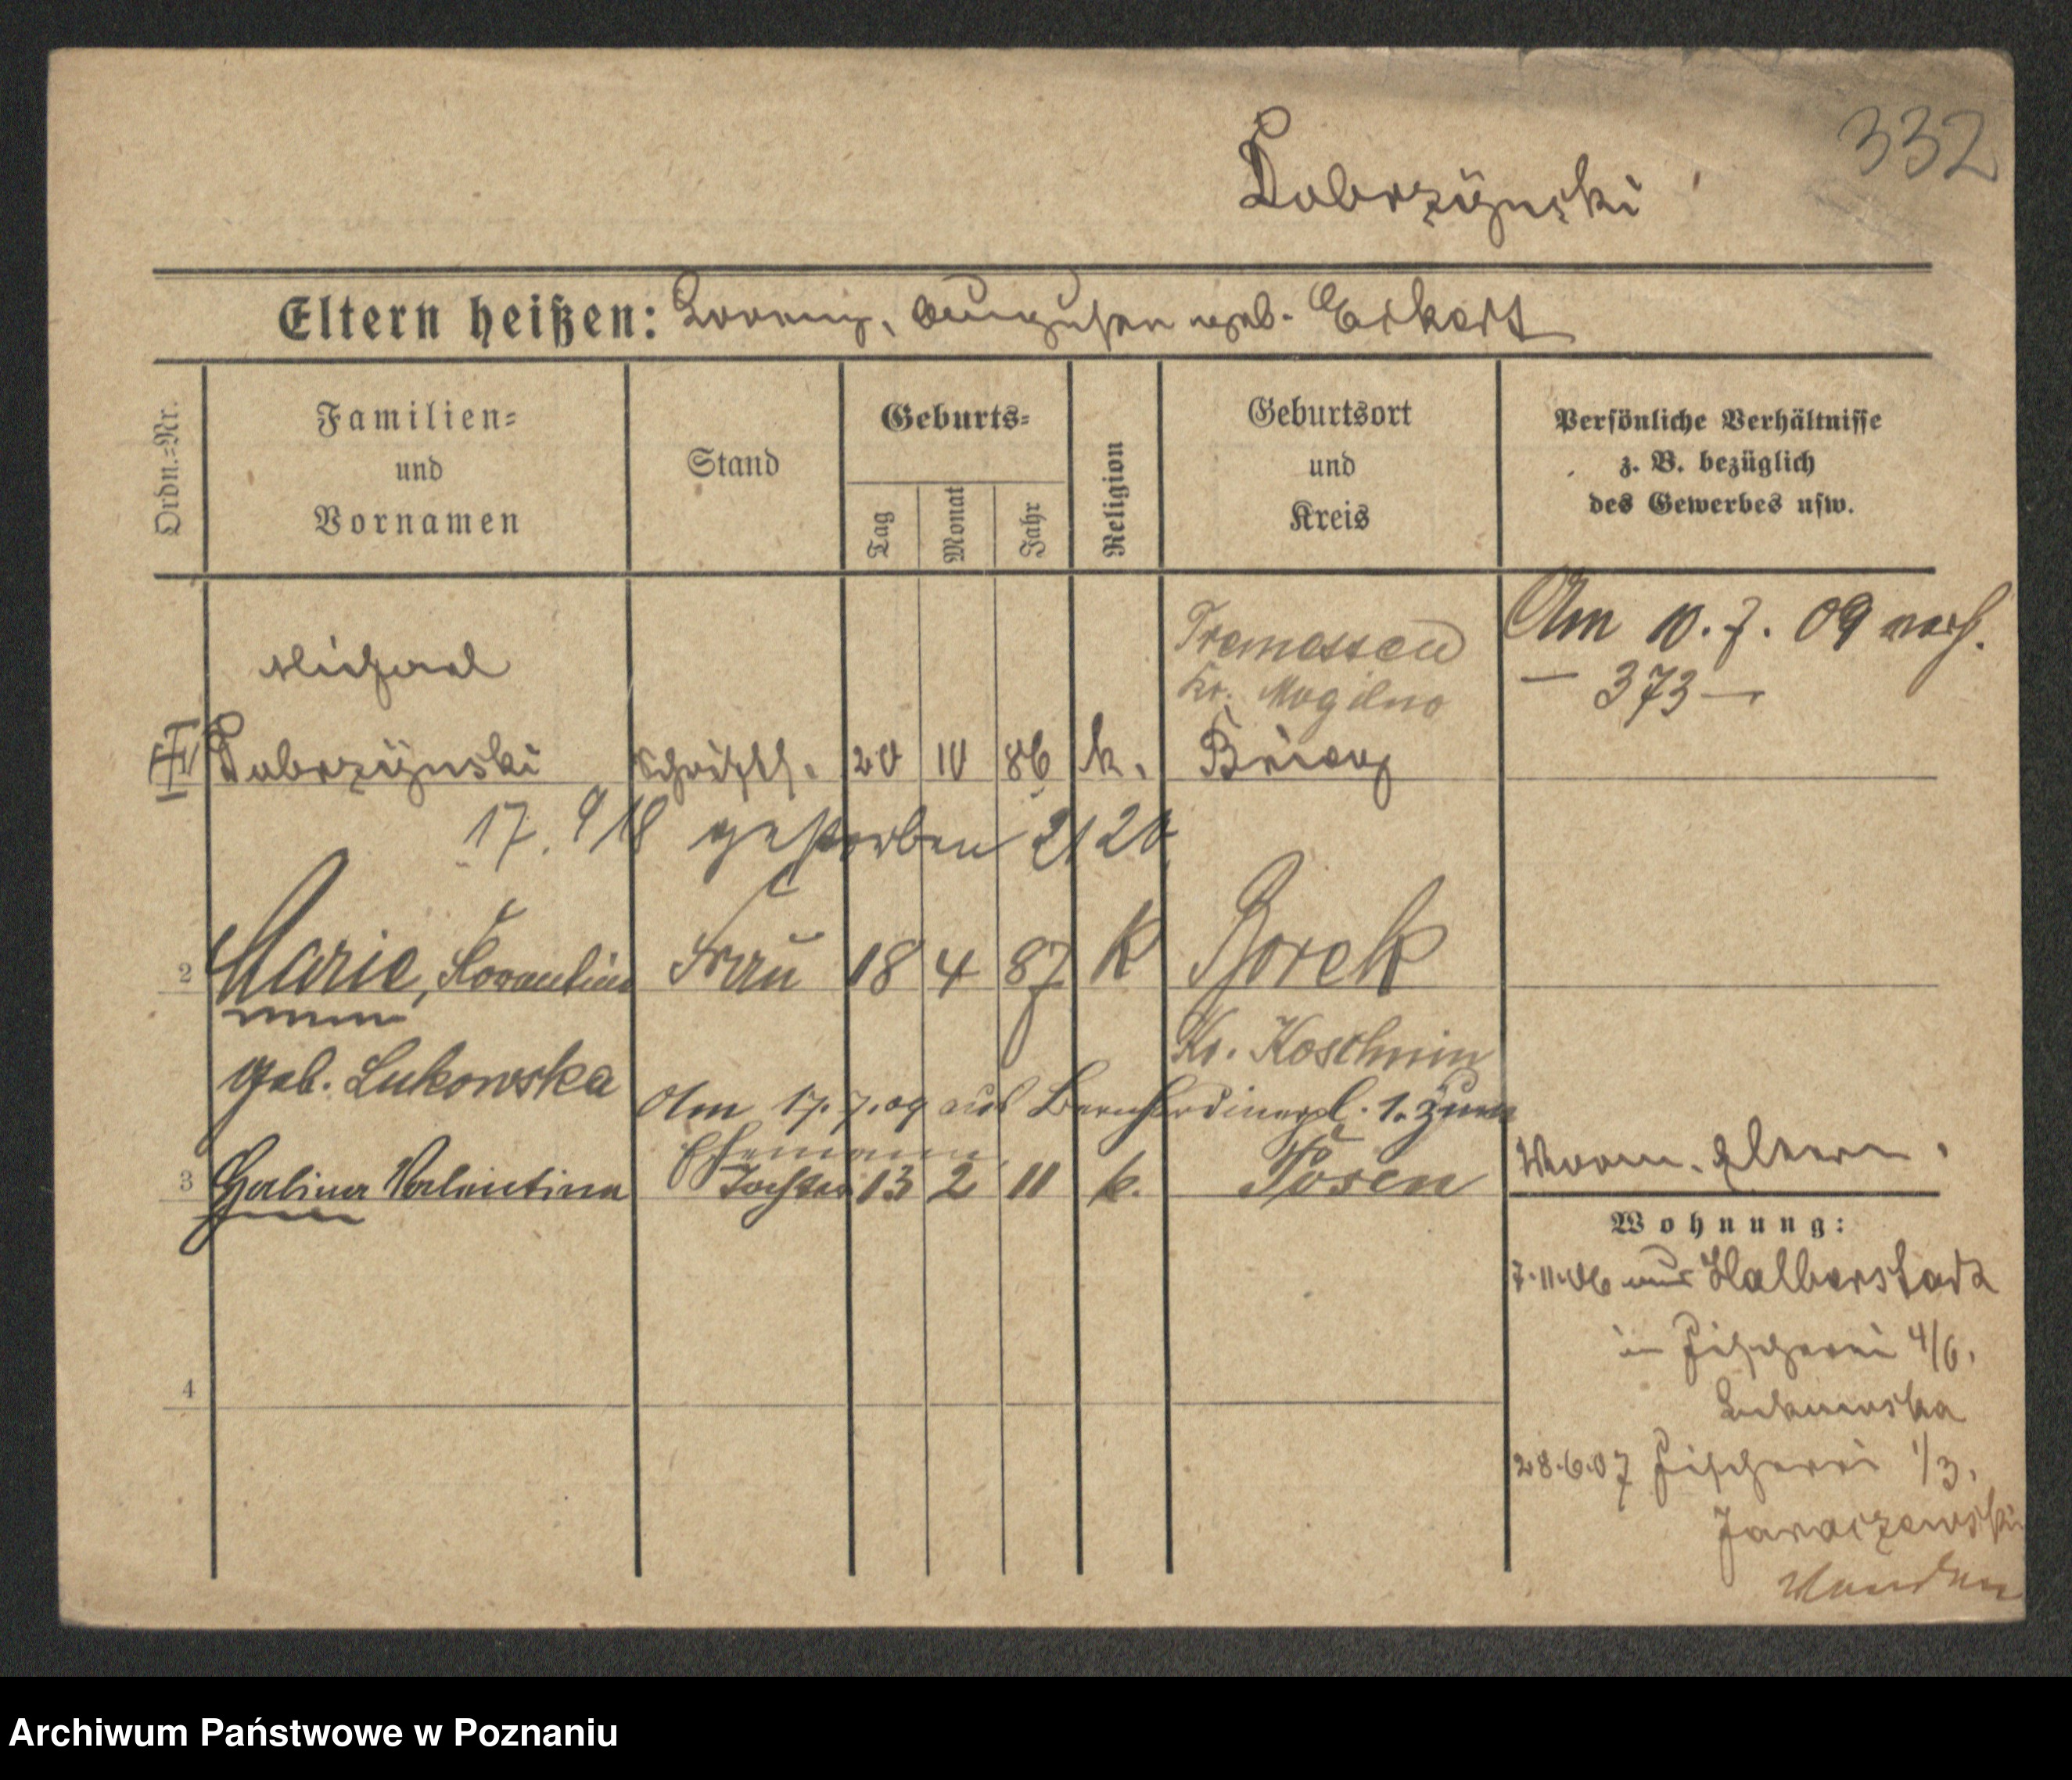 332
Dobrzÿnski
Eltern heißen: Lorenz, Augusta geb. Eckert
Ordn.-Nr.
Familien-
und
Vornamen
Stand
Geburts-
Tag
Monat
Jahr
Religion
Geburtsort
und
Kreis
Persönliche Verhältnisse
z. B. bezüglich
des Gewerbes usw.
Michael
Tremessen
Kr. Mogilno
Am 10. 7. 09 verh.
— 373 —
Dobrzÿnski 20 10 86 k. Brieg
17. 9/18 gestorben
2 Marie, Frau 18 4 87 K Borek
geb. Lukowska
Kr. Koschmin
Am 17. 7. 09 aus Bernhardinerpl. 1. zum
Ehemann
3 Halina Valentina Tochter 13 2 11 k. Posen
Eltern
Wohnung:
7.11.06 aus Halberstadt
in Fischerei 4/6.
Lukowska
4
28.6.07 Fischerei 1/3.
Jaraczewski
Archiwum Państwowe w Poznaniu